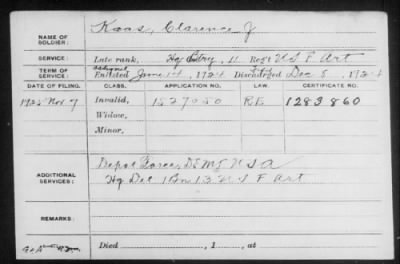 NAME OF SOLDIER: Kaas, Clarence J
SERVICE: Late rank, Hq Btry, 11 Reg't U S F Art
TERM OF SERVICE: Enlisted June 14, 1924 Discharged Dec 8, 1924
DATE OF FILING. CLASS. APPLICATION NO. LAW. CERTIFICATE NO.
1925 Nov 9 Invalid, 1527050 R.E. 1283860
Widow,
Minor,
ADDITIONAL SERVICES: Depot Force, DEML USA
Hq Det 1 Bn 13 U S F Art
REMARKS:
Died , 1 , at